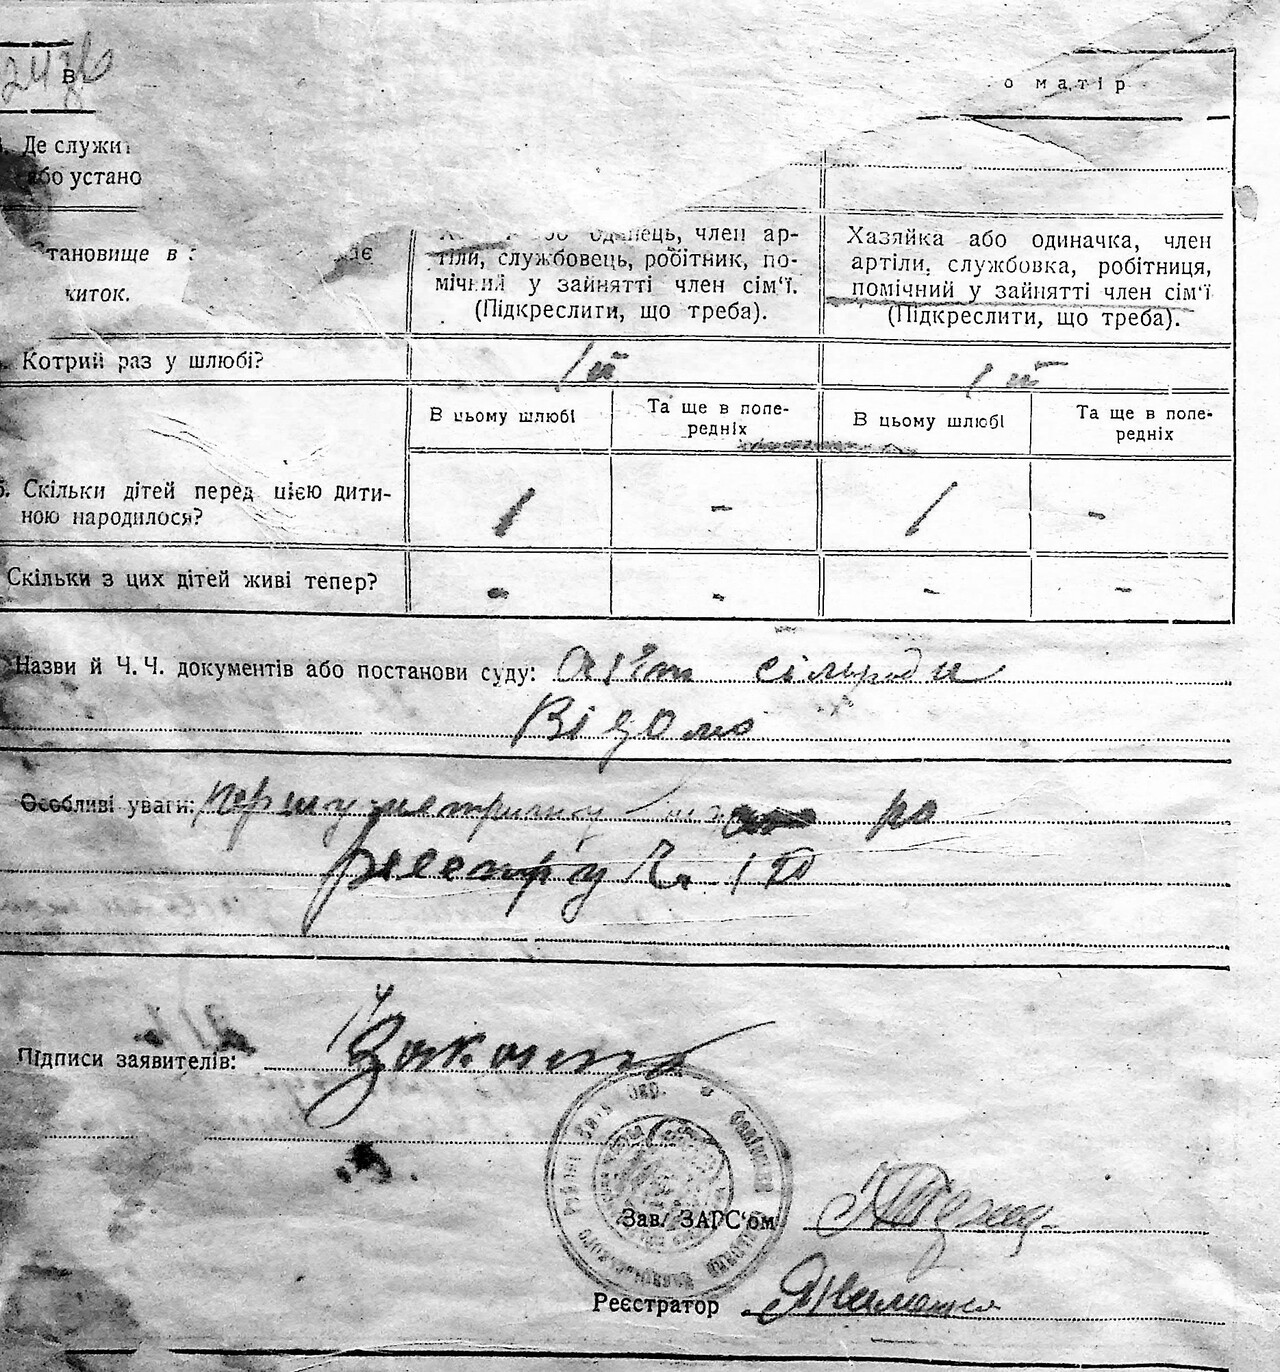 247
в
о матір
Де служит
або устано
тановище в
житок.
одинець, член ар-
тіли, службовець, робітник, по-
мічний у зайнятті член сім'ї.
(Підкреслити, що треба).
Хазяйка або одиначка, член
артіли, службовка, робітниця,
помічний у зайнятті член сім'ї
(Підкреслити, що треба).
Котрий раз у шлюбі? 1й 1й
В цьому шлюбі
Та ще в попе-
редніх
В цьому шлюбі
Та ще в попе-
редніх
Скільки дітей перед цією дити-
ною народилося? 1 - 1 -
Скільки з цих дітей живі тепер? - - - -
Назви й Ч.Ч. документів або постанови суду: сільради
Відомо
Особливі уваги: першу метрику по
реєстру Ч.
Підписи заявителів:
Зав/ ЗАГС'ом
Реєстратор